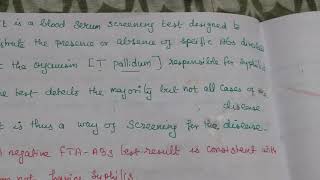 It is a blood serum screening test designed to
the presence or absence of specific Abs directed
the organism [T pallidum] responsible for Syphilis
test detects the majority but not all cases of the
disease
It is thus a way of Screening for the disease.
negative FTA-ABs test result is consistent with
not having Syphilis